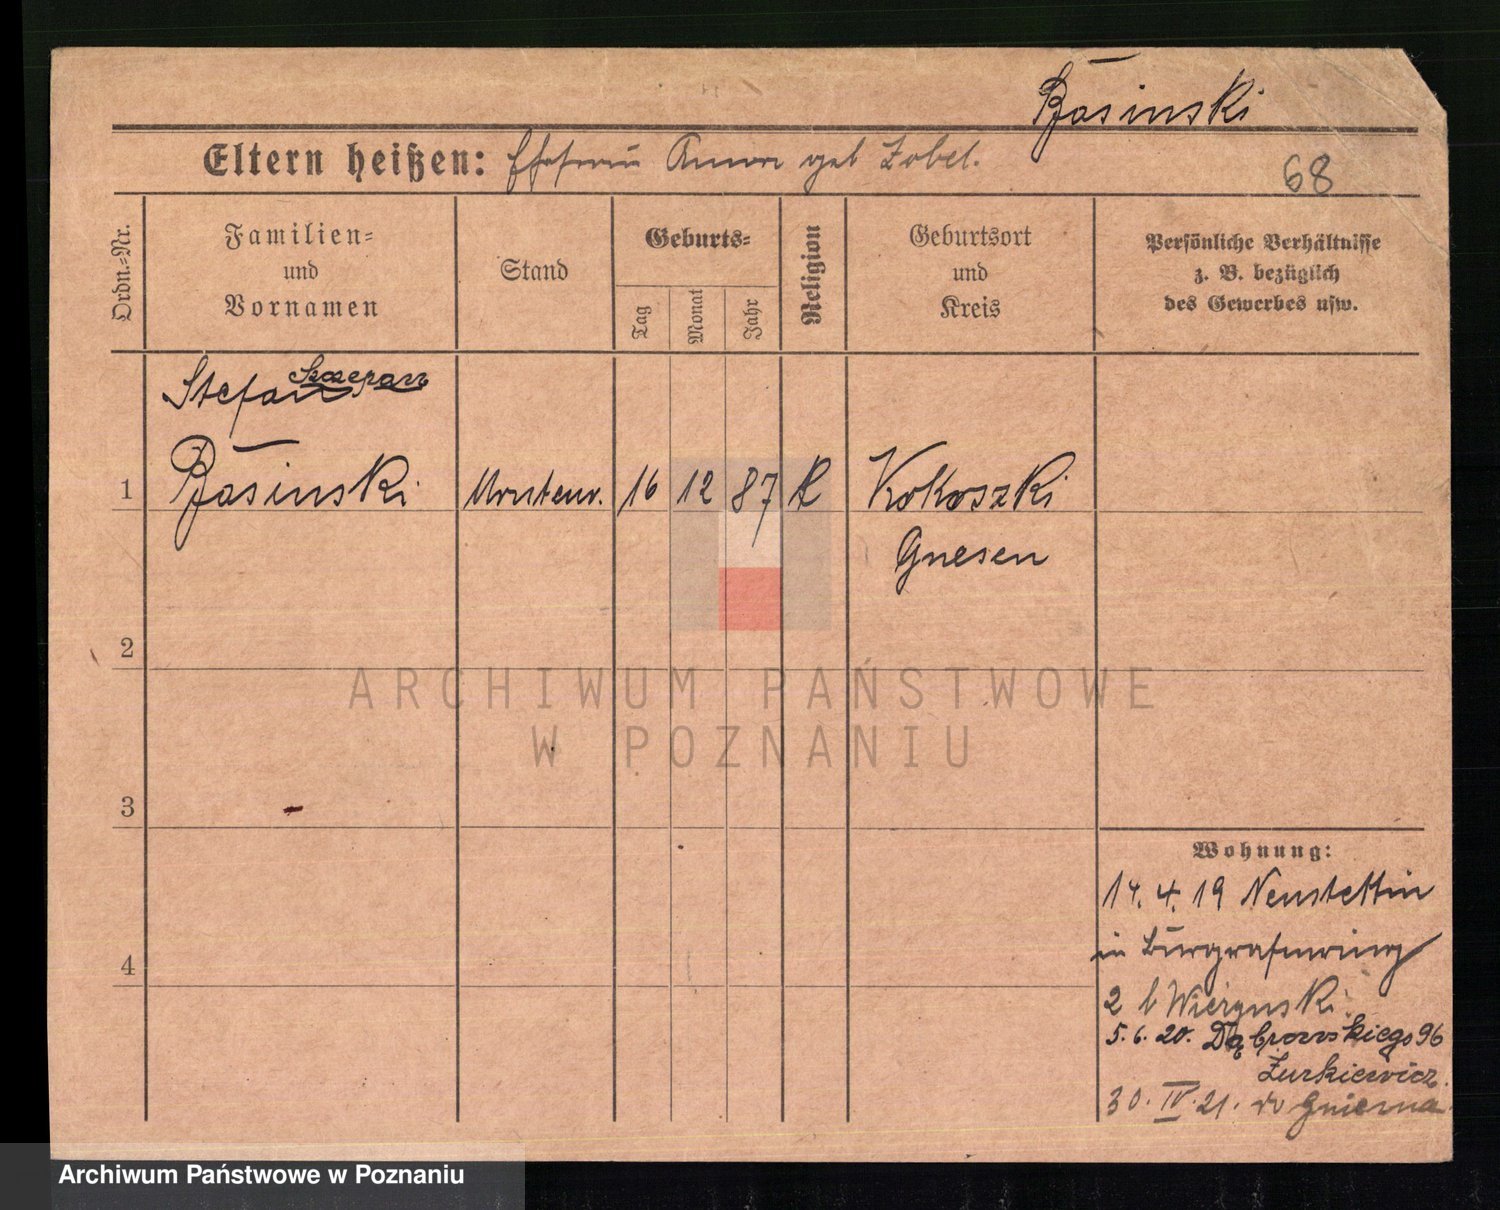 Basinski
Eltern heißen: Ehefrau Anna geb Zobel.
68
Ordn.-Nr.
Familien-
und
Vornamen
Stand
Geburts-
Tag
Monat
Jahr
Religion
Geburtsort
und
Kreis
Persönliche Verhältnisse
z. B. bezüglich
des Gewerbes usw.
Stefan
1 Basinski 16 12 87 K Kokoszki
Gnesen
2
3
4
Wohnung:
14. 4. 19 Neustettin
in Burggrafenring
2 b
5. 6. 20. Dąbrowskiego 96
Żurkiewicz.
30. IV. 21. do Gniezna
ARCHIWUM PAŃSTWOWE
W POZNANIU
Archiwum Państwowe w Poznaniu